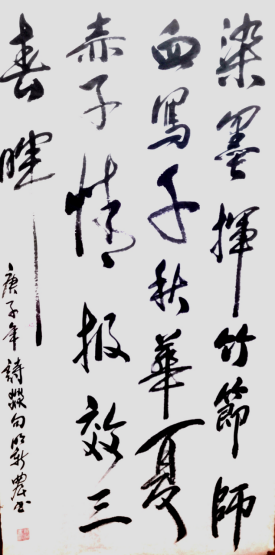 染墨揮竹節師
血寫千秋華夏
赤子情報效三
春暉
庚子年詩燚句昭新農書